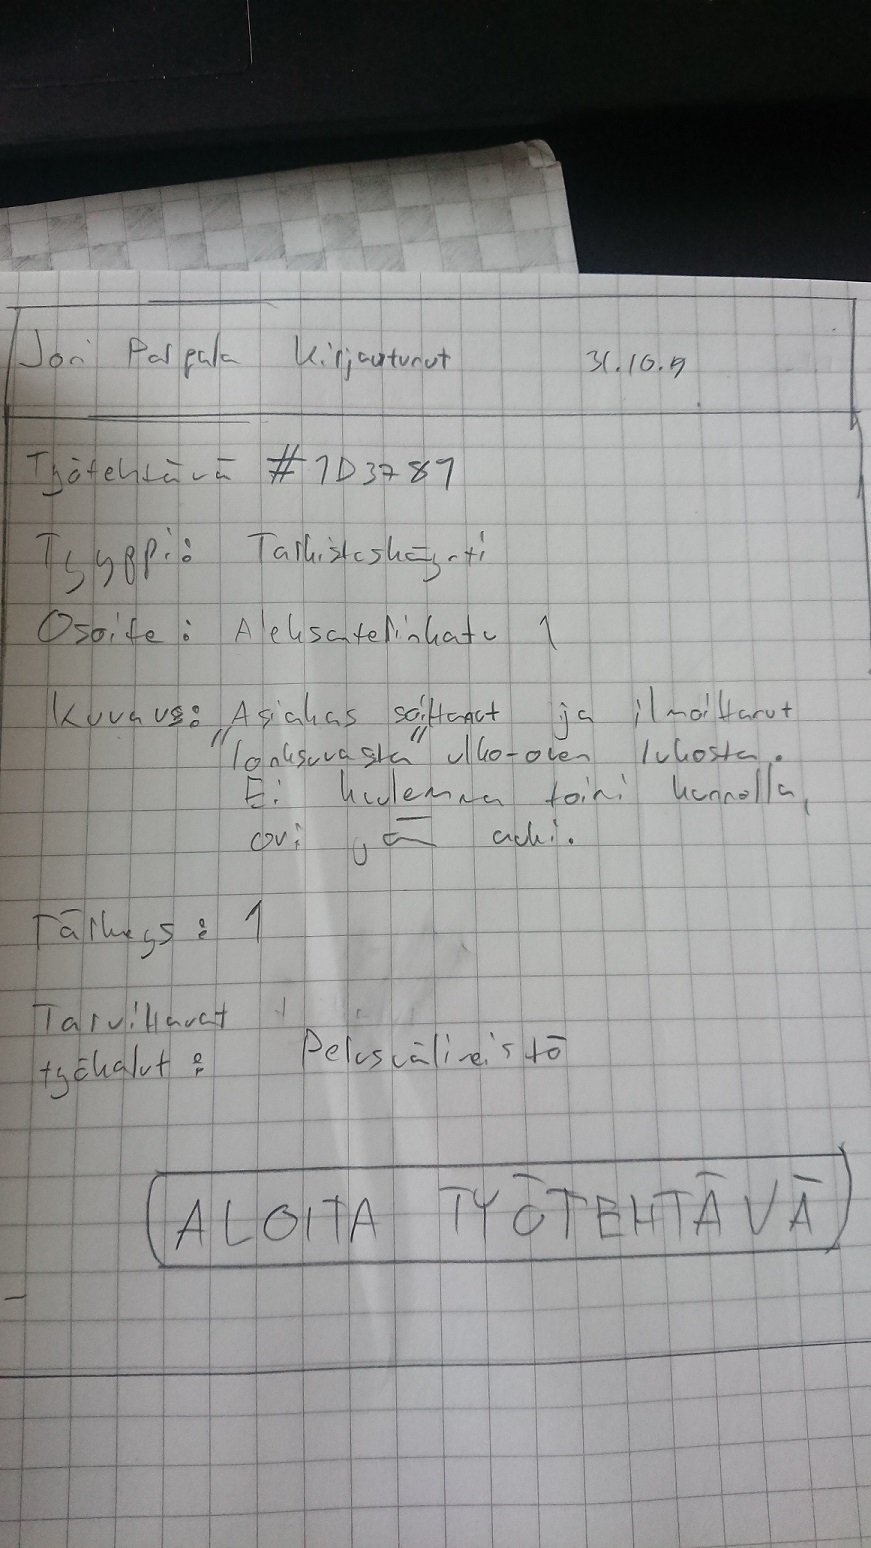 Jori Parpala Kirjautunut 31.10.
Työtehtävä #1D3789
Tyyppi: Tarkistuskäynti
Osoite: Aleksaterinkatu 1
Kuvaus: Asiakas soittanut ja ilmoittanut
"lonksuvasta" ulko-oven lukosta.
Ei kuulemma toimi kunnolla,
ovi jää auki.
Tärkeys: 1
Tarvittavat
työkalut: Perusvälineistö
ALOITA TYÖTEHTÄVÄ